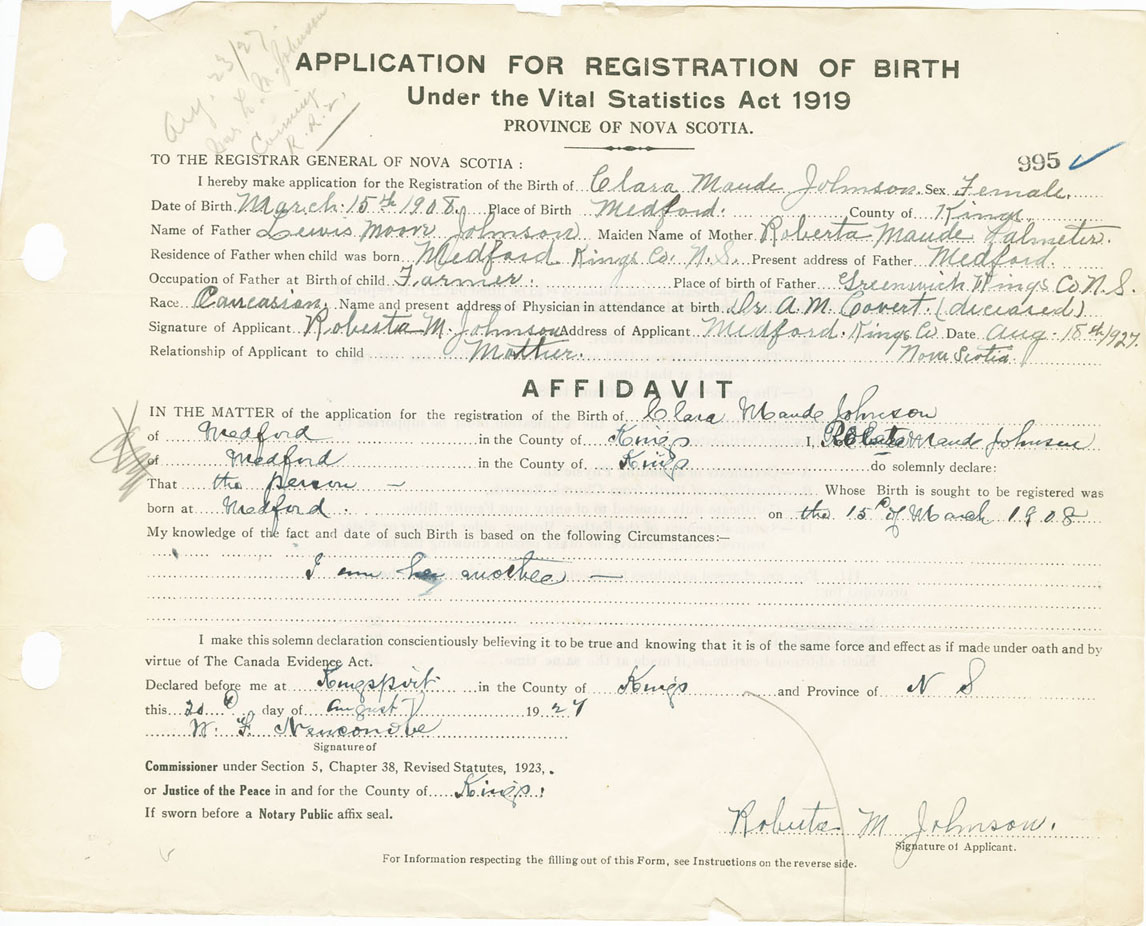 Aug. 23/27
L. M. Johnson
Canning
R. R. 2.
APPLICATION FOR REGISTRATION OF BIRTH
Under the Vital Statistics Act 1919
PROVINCE OF NOVA SCOTIA.
TO THE REGISTRAR GENERAL OF NOVA SCOTIA : 995
I hereby make application for the Registration of the Birth of Clara Maude Johnson. Sex Female.
Date of Birth March 15th 1908. Place of Birth Medford. County of Kings.
Name of Father Lewis Moore Johnson Maiden Name of Mother Roberta Maude Palmeter.
Residence of Father when child was born Medford Kings Co. N.S. Present address of Father Medford.
Occupation of Father at Birth of child Farmer. Place of birth of Father Greenwich Kings Co N.S.
Race Caucasian. Name and present address of Physician in attendance at birth Dr A. M. Covert. (deceased)
Signature of Applicant Roberta M. Johnson Address of Applicant Medford. Kings Co Date Aug. 18th/1927.
Relationship of Applicant to child Mother. Nova Scotia.
AFFIDAVIT
IN THE MATTER of the application for the registration of the Birth of Clara Maude Johnson
of Medford in the County of Kings I, Roberta Maud Johnson
of Medford in the County of Kings do solemnly declare:
That the person — Whose Birth is sought to be registered was
born at Medford. on the 15th of March 1908
My knowledge of the fact and date of such Birth is based on the following Circumstances:—
I am her mother —
I make this solemn declaration conscientiously believing it to be true and knowing that it is of the same force and effect as if made under oath and by
virtue of The Canada Evidence Act.
Declared before me at Kingsport in the County of Kings and Province of N S
this 20th day of August 1927
W. F. Newcombe
Signature of
Commissioner under Section 5, Chapter 38, Revised Statutes, 1923,
or Justice of the Peace in and for the County of Kings.
If sworn before a Notary Public affix seal.
Roberta M Johnson.
Signature of Applicant.
For Information respecting the filling out of this Form, see Instructions on the reverse side.